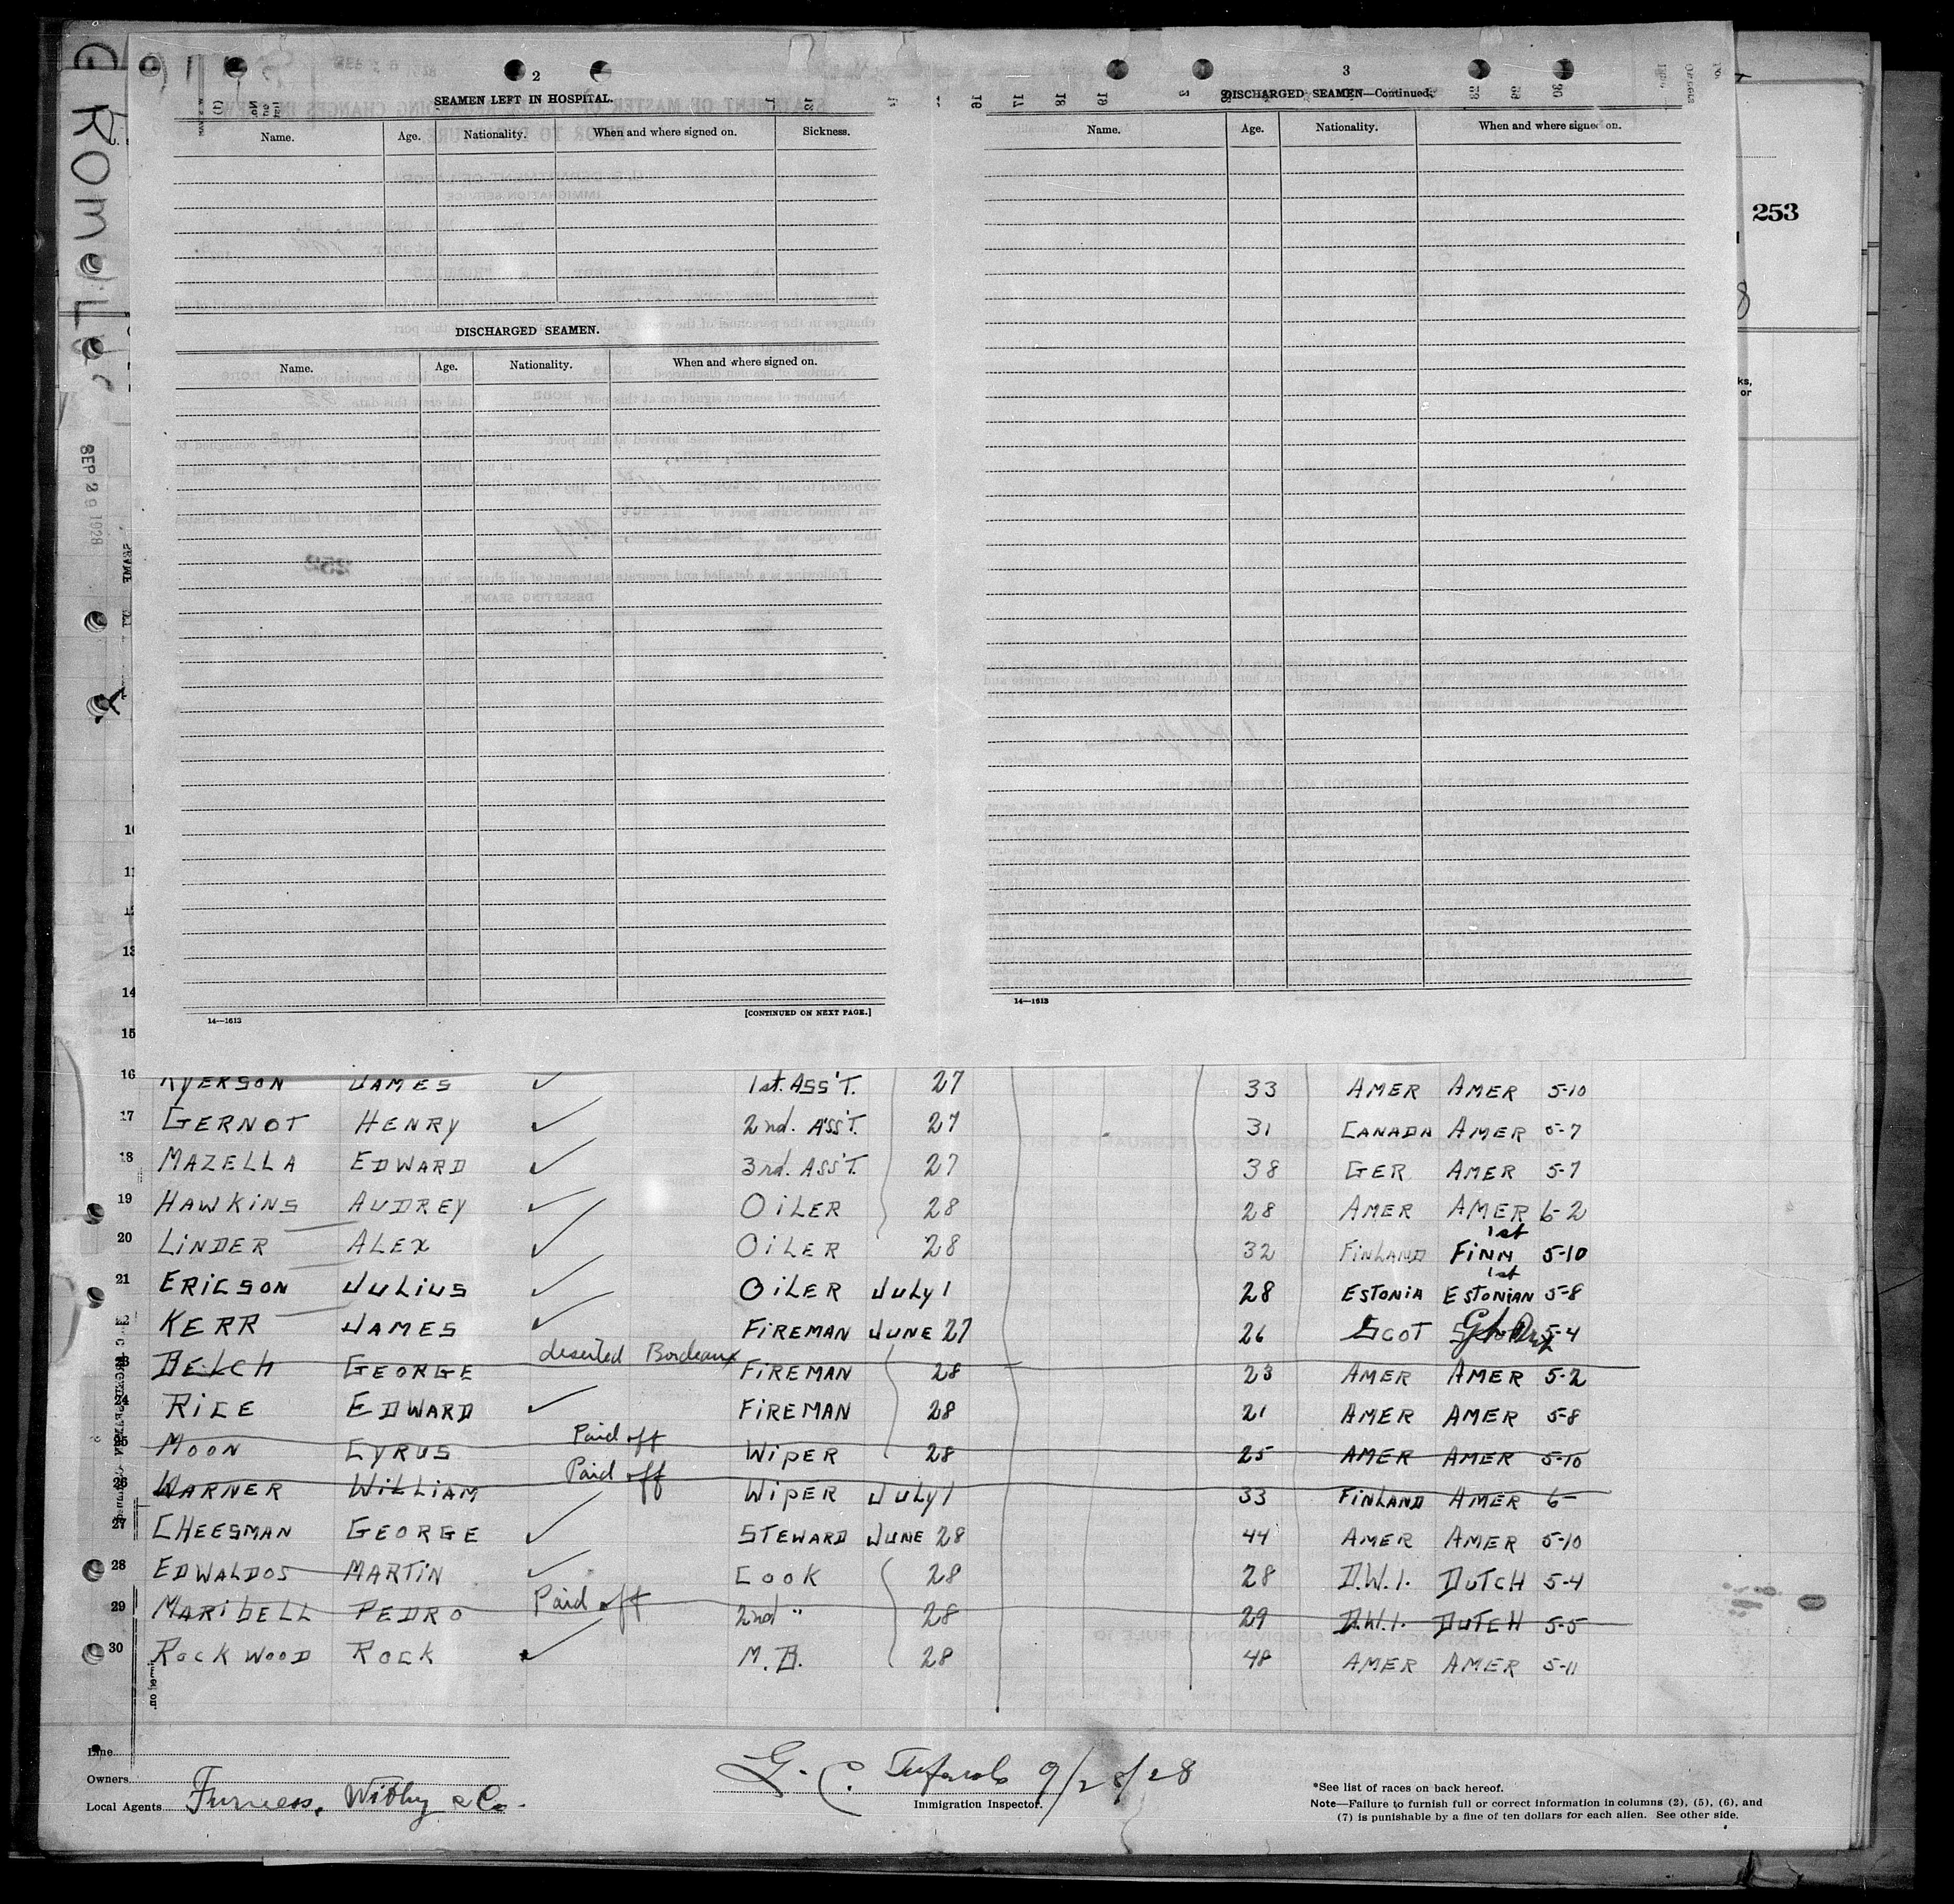 2
SEAMEN LEFT IN HOSPITAL.
Name. Age. Nationality. When and where signed on. Sickness.
DISCHARGED SEAMEN.
Name. Age. Nationality. When and where signed on.
14—1613
[CONTINUED ON NEXT PAGE.]
3
DISCHARGED SEAMEN—Continued.
Name. Age. Nationality. When and where signed on.
14—1613
253
ks,
or
SEP 29 1928
10
11
12
13
14
15
16 RYERSON JAMES ✓ 1st. ASS'T. 27 33 AMER AMER 5-10
17 GERNOT HENRY ✓ 2nd. ASS'T. 27 31 CANADA AMER 5-7
18 MAZELLA EDWARD ✓ 3rd. ASS'T. 27 38 GER AMER 5-7
19 HAWKINS AUDREY ✓ OILER 28 28 AMER AMER 6-2
20 LINDER ALEX ✓ OILER 28 32 FINLAND 1st FINN 5-10
21 ERICSON JULIUS ✓ OILER JULY 1 28 ESTONIA 1st ESTONIAN 5-8
22 KERR JAMES ✓ FIREMAN JUNE 27 26 SCOT 5-4
23 BELCH GEORGE deserted Bordeaux FIREMAN 28 23 AMER AMER 5-2
24 RICE EDWARD ✓ FIREMAN 28 21 AMER AMER 5-8
25 MOON CYRUS Paid off WIPER 28 25 AMER AMER 5-10
26 WARNER WILLIAM Paid off WIPER JULY 1 33 FINLAND AMER 6-
27 CHEESMAN GEORGE ✓ STEWARD JUNE 28 44 AMER AMER 5-10
28 EDWALDOS MARTIN ✓ COOK 28 28 D.W.I. DUTCH 5-4
29 MARIBELL PEDRO Paid off 2nd " 28 29 D.W.I. DUTCH 5-5
30 ROCKWOOD ROCK ✓ M.B. 28 48 AMER AMER 5-11
Line
Owners
Local Agents Furness, Withy & Co.
G. C. 9/28/28
Immigration Inspector.
*See list of races on back hereof.
Note—Failure to furnish full or correct information in columns (2), (5), (6), and
(7) is punishable by a fine of ten dollars for each alien. See other side.